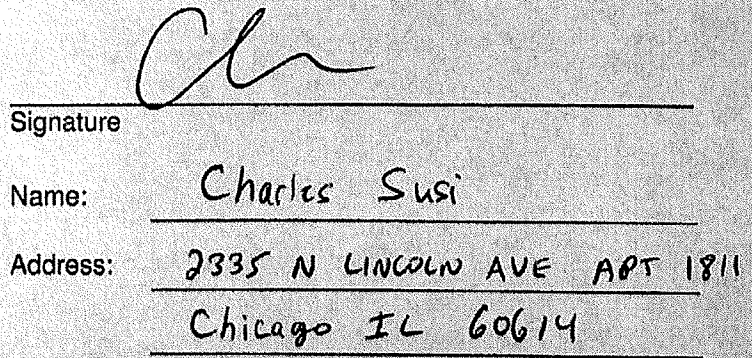 Signature
Name: Charles Susi
Address: 2335 N LINCOLN AVE APT 1811
Chicago IL 60614